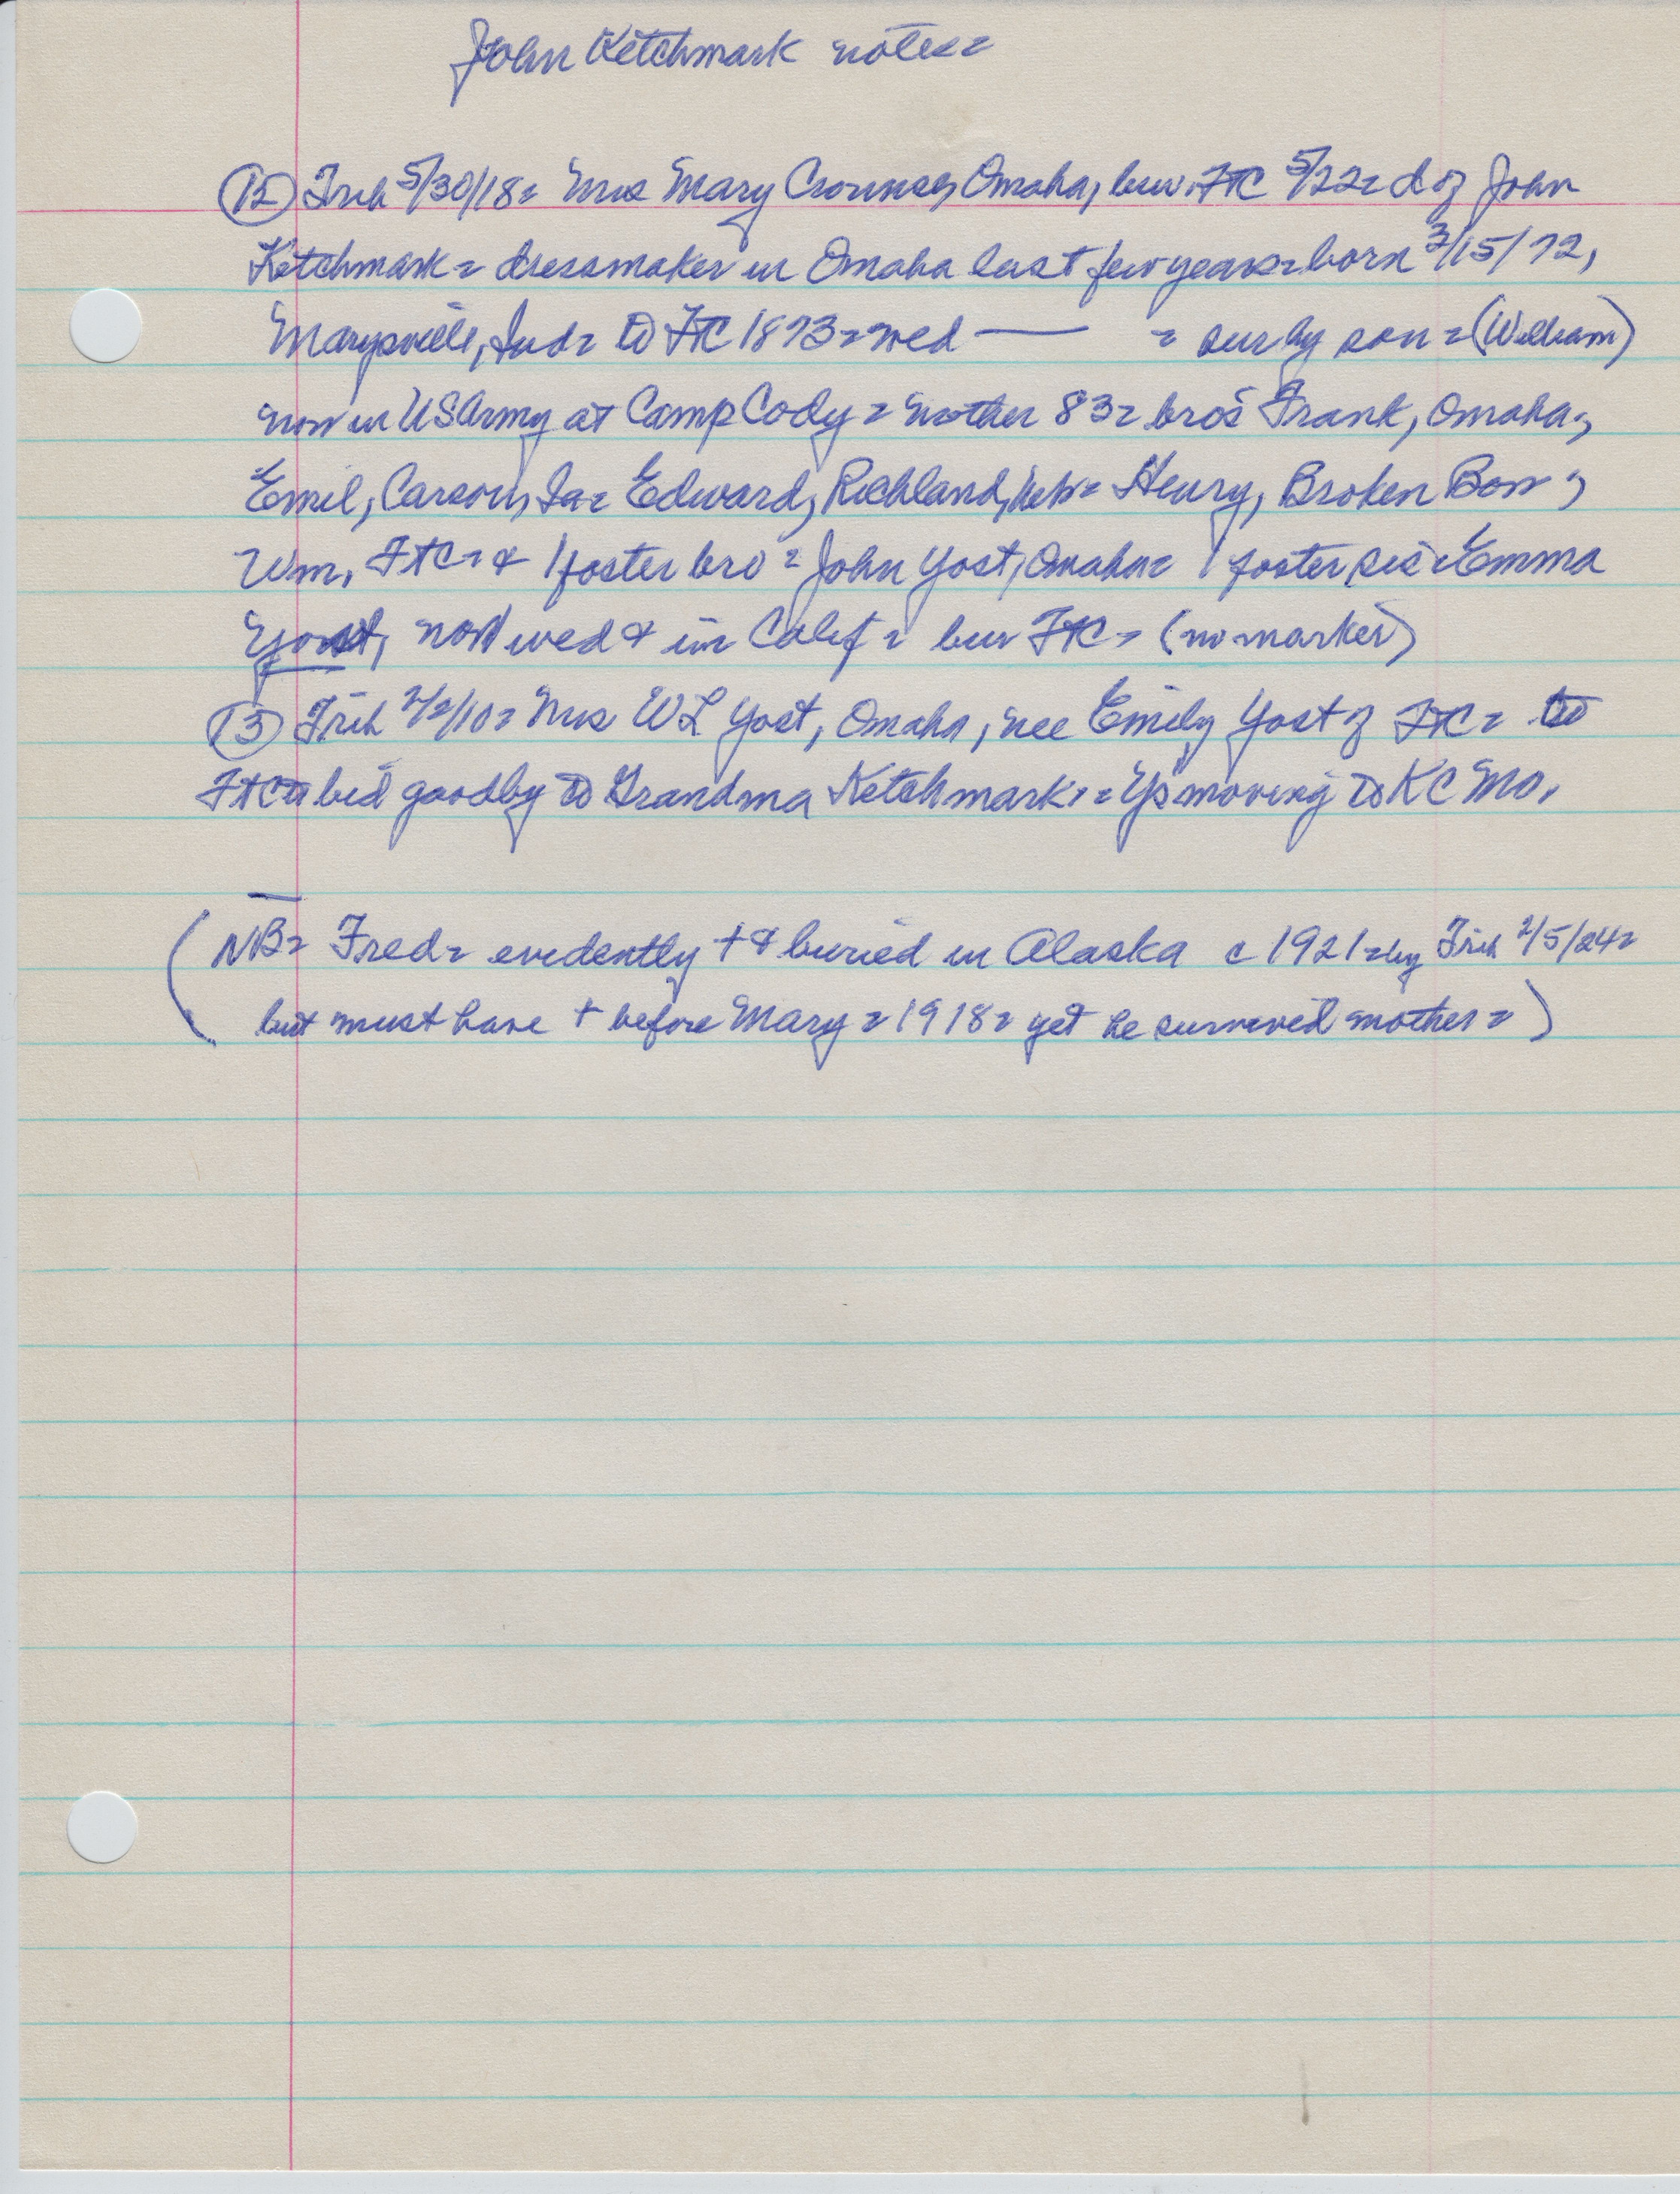 John Ketchmark notes=
(12) Trib 5/30/18= Mrs Mary Crounse, Omaha, bur. FtC 5/22= d of John
Ketchmark= dressmaker in Omaha last few years= born 3/15/72,
Marysville, Ind= to FtC 1873= wed — = sur by son= (William)
now in US Army at Camp Cody= mother 83= bros Frank, Omaha;
Emil, Carson, Ia= Edward, Richland, Neb= Henry, Broken Bow;
Wm, FtC= & 1 foster bro= John Yost, Omaha= 1 foster sis= Emma
Yost, now wed & in Calif= bur FtC= (no marker)
(13) Trib 2/2/10= Mrs W L Yost, Omaha, nee Emily Yost of FtC= to
FtC to bid goodby to Grandma Ketchmark= Ys moving to KC Mo.
(NB= Fred= evidently + & buried in Alaska c 1921= by Trib 2/5/24=
but must have + before Mary= 1918= yet he survived mother=)